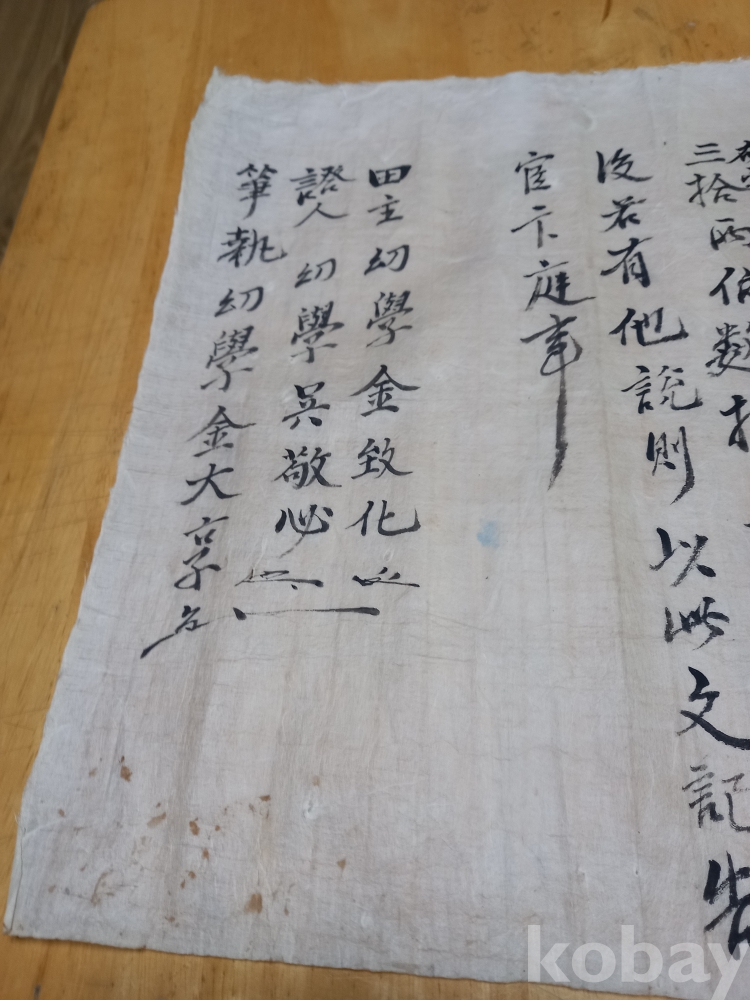 三拾両価数
後若有他說則以此文記告
官卞庭事
田主幼學金致化
證人幼學吳敬必
筆執幼學金大享
kobay